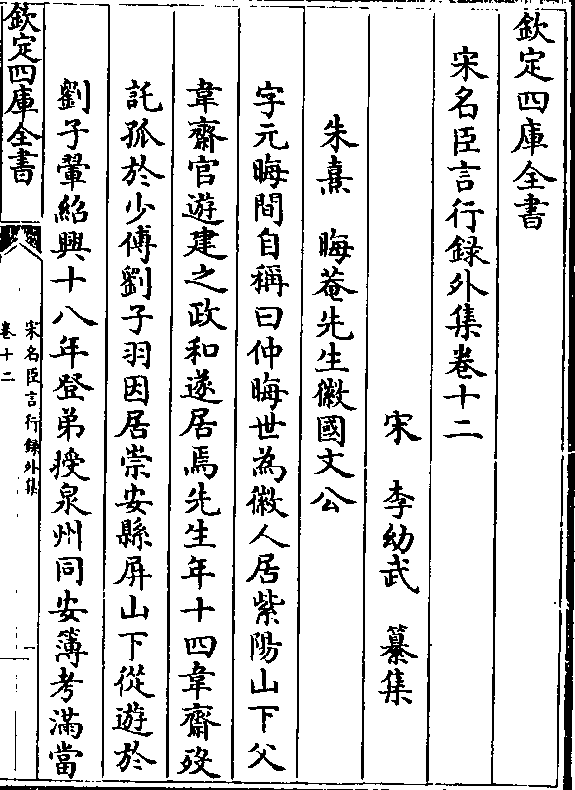 欽定四庫全書
宋名臣言行録外集巻十二
宋 李幼武 纂集
朱熹 晦菴先生徽國文公
字元晦間自稱曰仲晦世為徽人居紫陽山下父
韋齋官遊建之政和遂居焉先生年十四韋齋歿
託孤於少傅劉子羽因居崇安縣屏山下從遊於
劉子翬紹興十八年登弟授泉州同安簿考滿當
欽定四庫全書
宋名臣言行録外集
巻十二
一